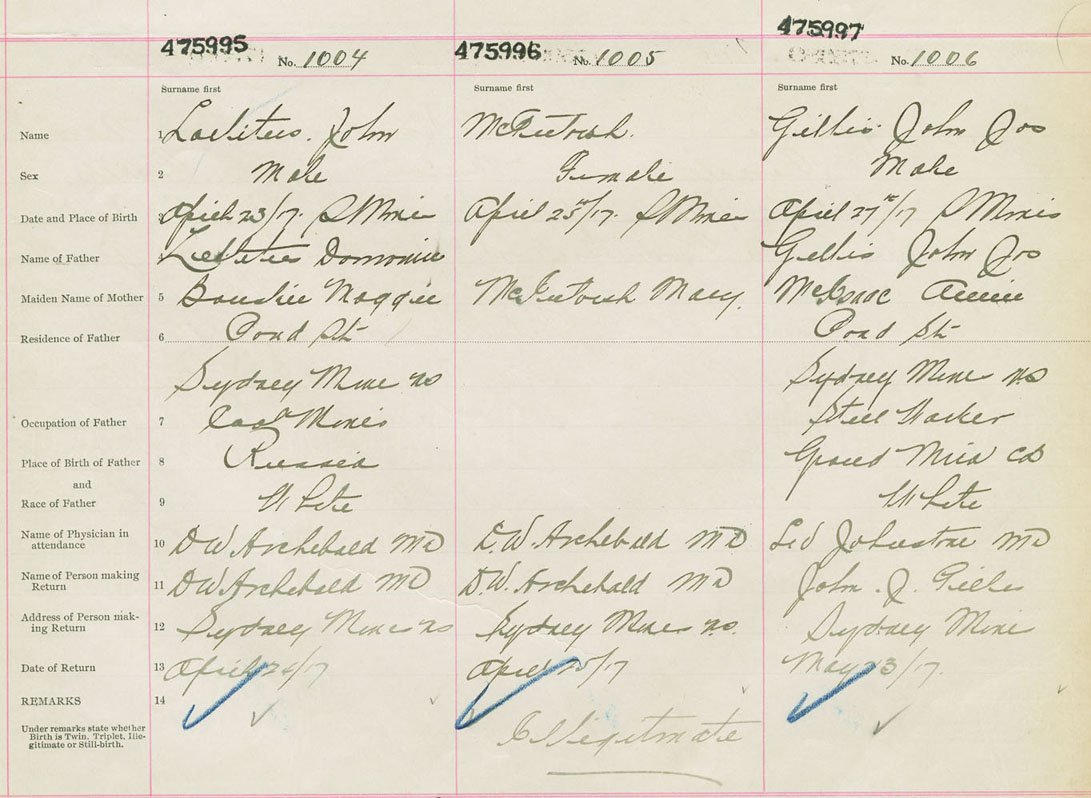 475995 475996 475997
No. 1004 No. 1005 No. 1006
Surname first Surname first Surname first
Name 1 John McIntosh. Gillis John Jos
Sex 2 Male Female Male
Date and Place of Birth April 23/17. S Mines April 25th/17. S Mines April 27th/17 S Mines
Name of Father Gillis John Jos
Maiden Name of Mother 5 Maggie McIntosh Mary. McIsaac Annie
Residence of Father 6 Pond St Pond St
Sydney Mine NS Sydney Mine NS
Occupation of Father 7 Coal Miner Steel Worker
Place of Birth of Father 8 Russia Grand Mira CB
and
Race of Father 9 White White
Name of Physician in
attendance 10 D W Archebald MD D.W. Archebald MD Johnstone MD
Name of Person making
Return 11 D W Archebald MD D.W. Archebald MD John. J. Gillis
Address of Person mak-
ing Return 12 Sydney Mines NS Sydney Mines NS. Sydney Mines
Date of Return 13 April /17 April /17 May 23/17.
REMARKS 14
Under remarks state whether
Birth is Twin, Triplet, Ille-
gitimate or Still-birth.
Illegitmate